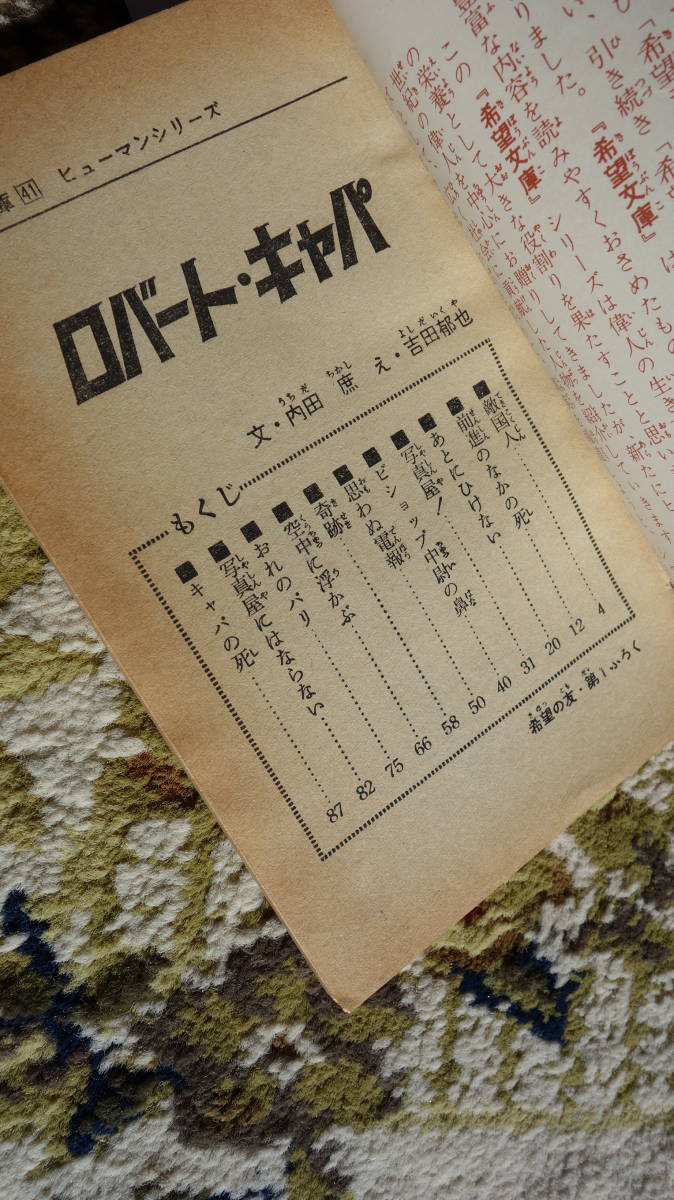 庫 41 ヒューマンシリーズ
ロバート・キャパ
文・内田 庶 え・吉田郁也
もくじ
■敵国人 4
■前進のなかの死 12
■あとにひけない 20
■写真屋! 31
■ビショップ中尉の鼻 40
■思わぬ電報 50
■奇跡 58
■空中に浮かぶ 66
■おれのパリ 75
■写真屋にはならない 82
■キャパの死 87
希望の友・第1ふろく
『希望
い、引き続き『希
りました。『希望文庫』は
豊富な内容を読みやすくおさめたもの
この『希望文庫』シリーズは偉人の生き
の栄養として大きな役割りを果たすことと思い
世紀の偉人を中心に